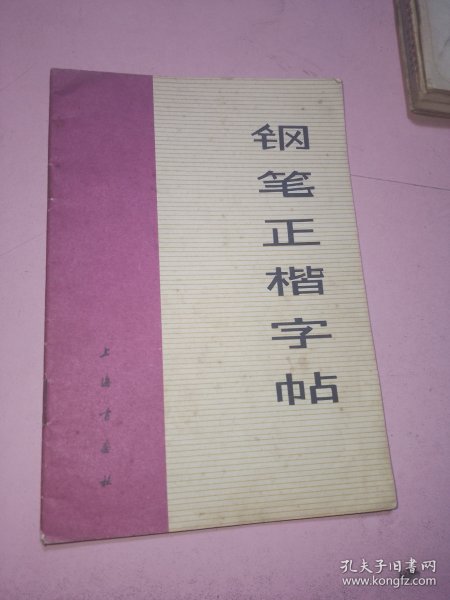 钢笔正楷字帖
上海书画社
孔夫子旧书网
www.kongfz.com